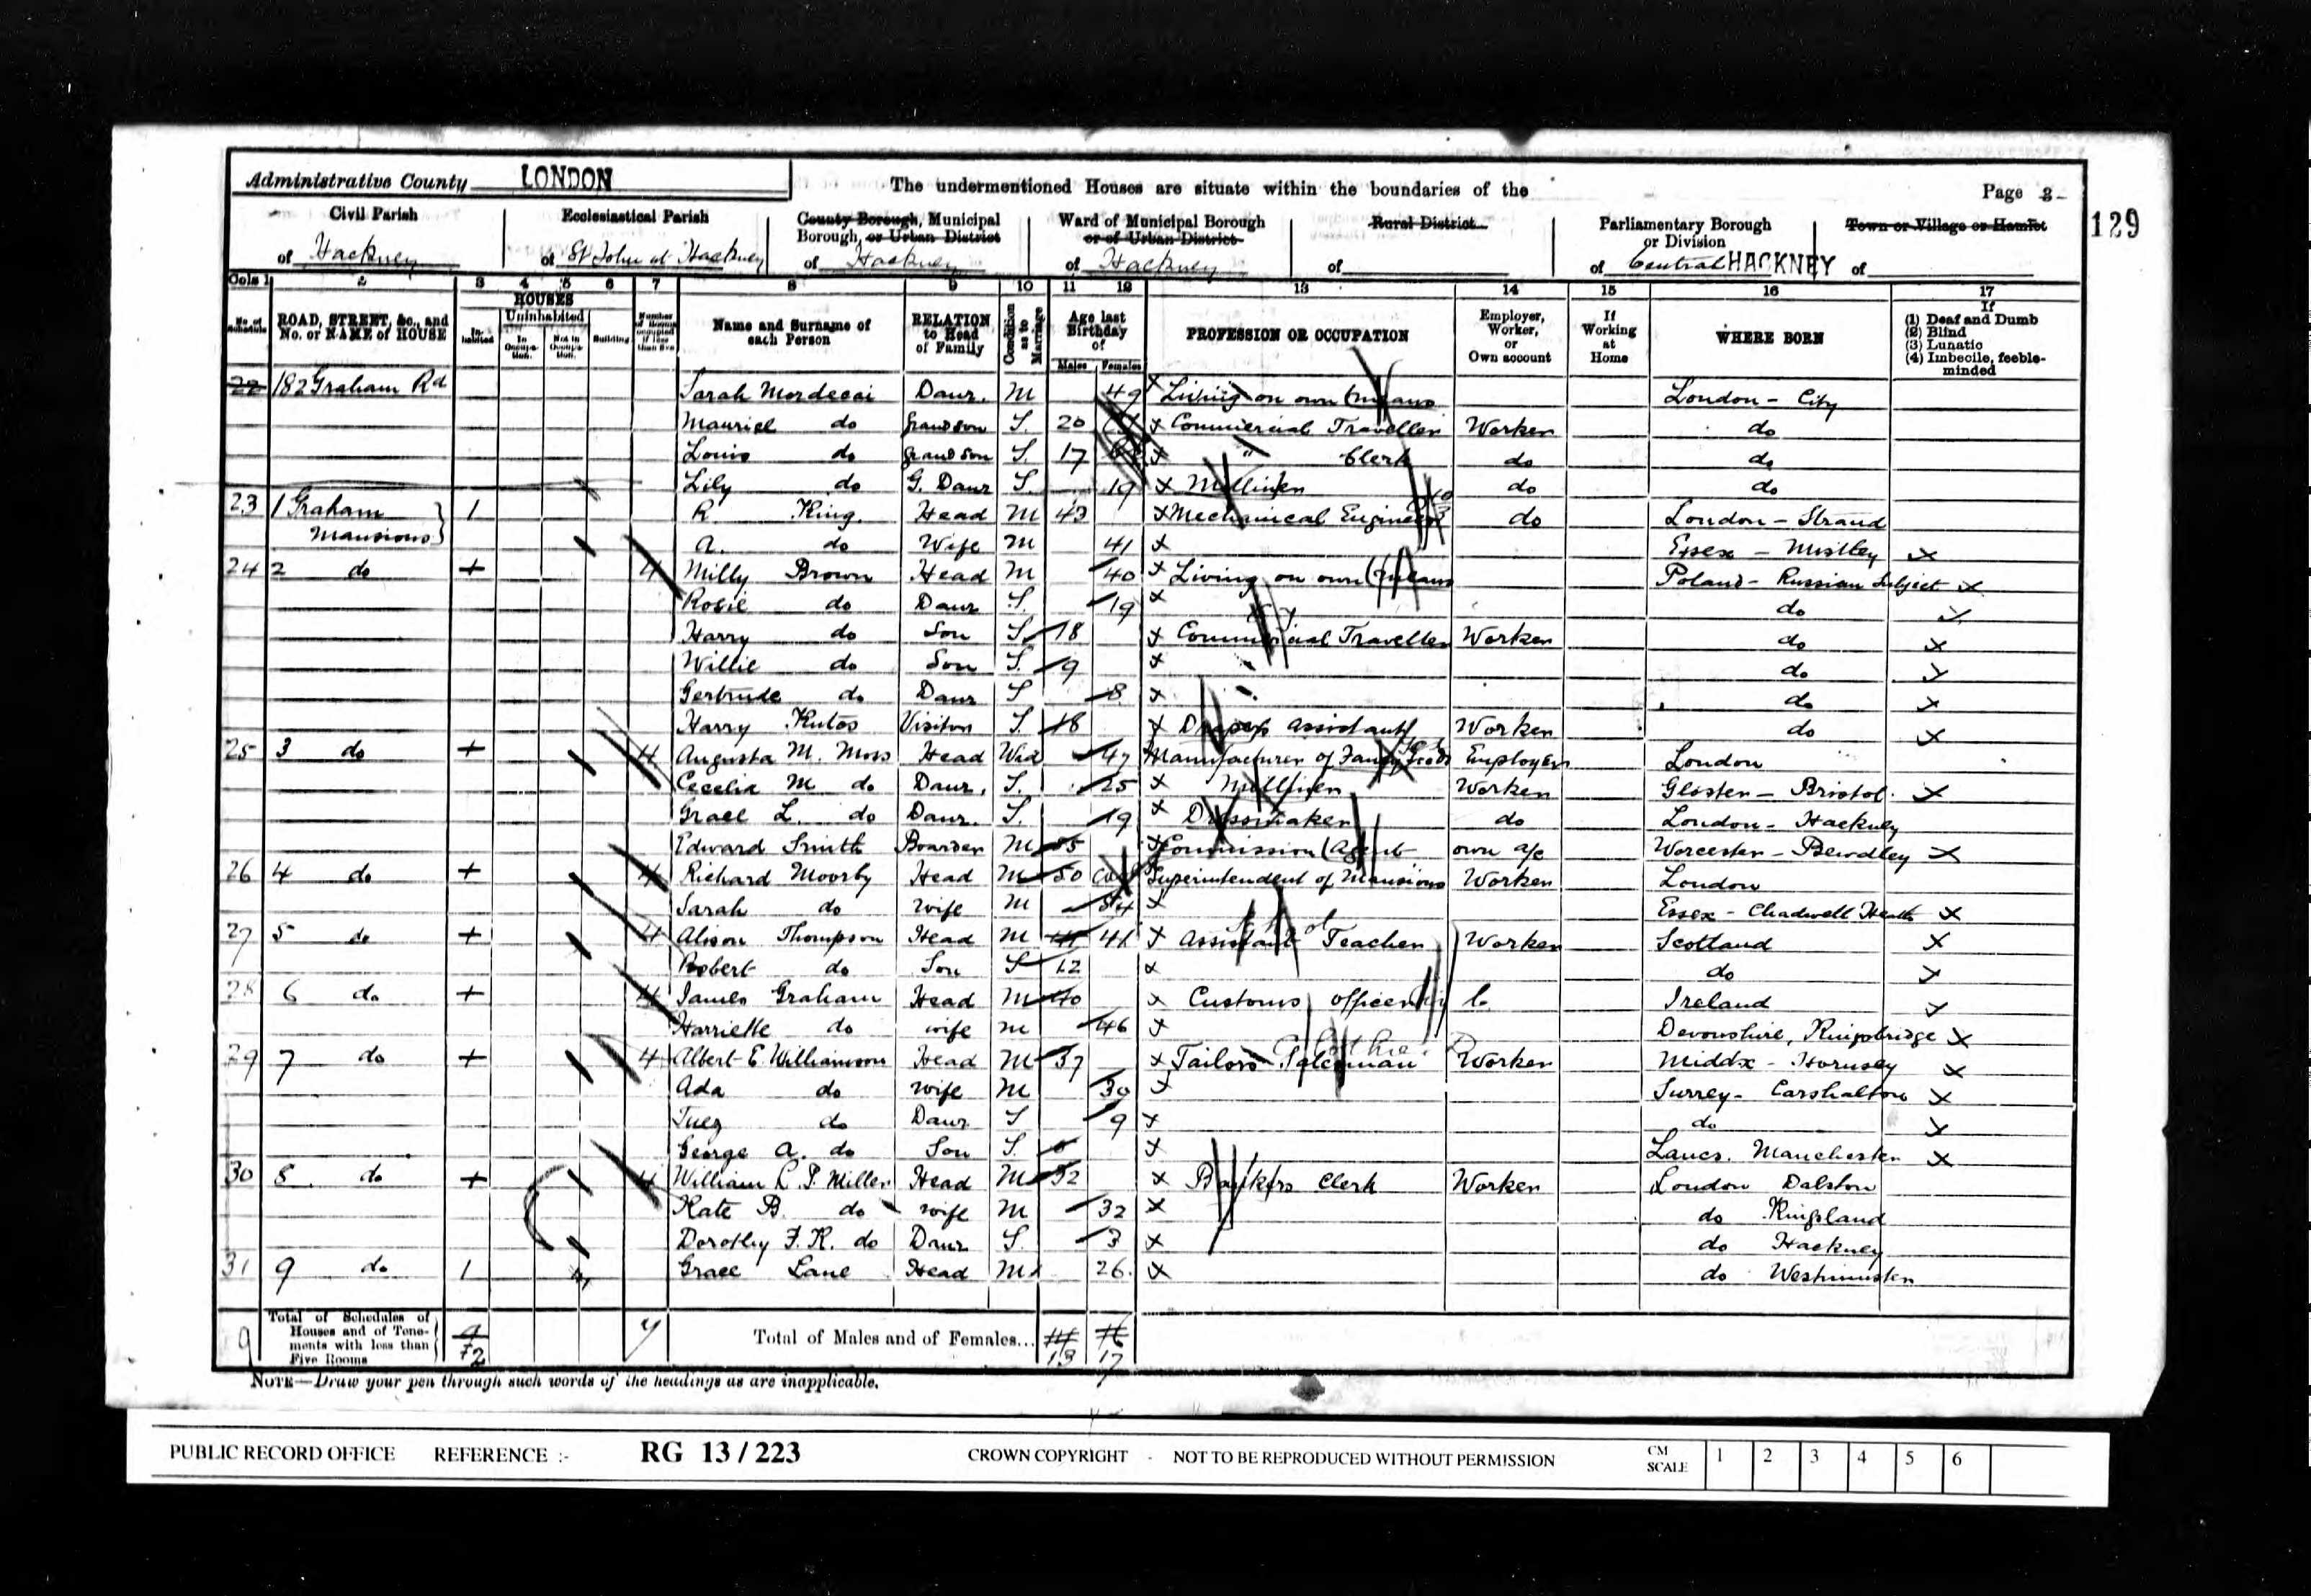 Administrative County LONDON
The undermentioned Houses are situate within the boundaries of the
Page 3
129
Civil Parish of Hackney
Ecclesiastical Parish of St John at Hackney
County Borough, Municipal Borough, or Urban District of Hackney
Ward of Municipal Borough or of Urban District of Hackney
Rural District of
Parliamentary Borough or Division of Central HACKNEY
Town or Village or Hamlet of
Cols 1 2 3 4 5 6 7 8 9 10 11 12 13 14 15 16 17
No. of Schedule
ROAD, STREET, &c., and No. or NAME of HOUSE
HOUSES
Inhabited
Uninhabited
In Occupation.
Not in Occupation.
Building
Number of Rooms occupied if less than five
Name and Surname of each Person
RELATION to Head of Family
Condition as to Marriage
Age last Birthday of
Males Females
PROFESSION OR OCCUPATION
Employer, Worker, or Own account
If Working at Home
WHERE BORN
If (1) Deaf and Dumb (2) Blind (3) Lunatic (4) Imbecile, feeble-minded
22 182 Graham Rd Sarah Mordecai Daur. M 49 Living on own means London - City
Do Grandson S. 20 Commercial Traveller Worker do
Louis do Grandson S. 17 " Clerk do do
Lily do G. Daur S. 19 Milliner do do
23 1 Graham Mansions 1 R. King. Head M 43 Mechanical Engineer do London - Strand
A. do Wife M 41 Essex - Mistley
24 2 do + 4 Milly Brown Head M 40 Living on own means Poland - Russian Subject
Rosie do Daur S. 19 do
Harry do Son S. 18 Commercial Traveller Worker do
Willie do Son S. 9 do
Gertrude do Daur S 8 do
Harry Visitor S. 18 Drapers assistant Worker do
25 3 do + 4 Augusta M. Moss Head Wid 47 Manufacturer of Fancy Goods Employer London
Cecelia M do Daur. S. 25 Milliner Worker Gloster - Bristol
Grace L. do Daur. S. 19 Dressmaker do London - Hackney
Edward Smith Boarder M Commission Agent own a/c Worcester - Bewdley
26 4 do + 4 Richard Moorby Head M 50 Superintendent of Mansions Worker London
Sarah do wife M 54 Essex - Chadwell Heath
27 5 do + 4 Alison Thompson Head M 41 Assistant Teacher Worker Scotland
Robert do Son S 12 do
28 6 do + 4 James Graham Head M 40 Customs officer Ireland
Harriette do wife M 46 Devonshire, Kingsbridge
29 7 do + 4 Albert E. Williamson Head M 37 Tailors Salesman Worker Middx - Hornsey
Ada do wife M Surrey - Carshalton
Inez do Daur S 9 do
George A. do Son S. Lancs. Manchester
30 8 do + 4 William Miller Head M 32 Bankers Clerk Worker London Dalston
Kate B. do wife M 32 do Kingsland
Dorothy F. K. do Daur S. 3 do Hackney
31 9 do 1 Grace Lane Head M 26 do Westminster
9 Total of Schedules of Houses and of Tenements with less than Five Rooms
Total of Males and of Females...
13 17
NOTE—Draw your pen through such words of the headings as are inapplicable.
PUBLIC RECORD OFFICE REFERENCE :- RG 13 / 223 CROWN COPYRIGHT - NOT TO BE REPRODUCED WITHOUT PERMISSION CM SCALE 1 2 3 4 5 6